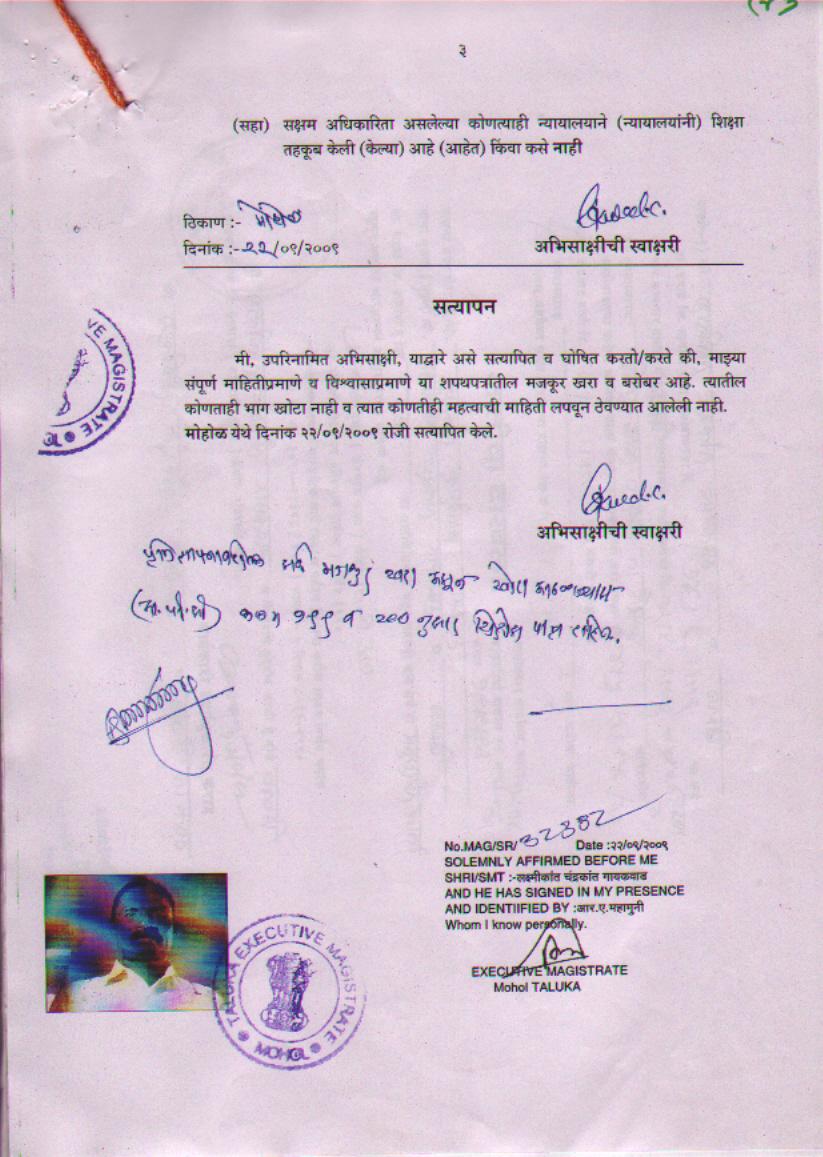 ३
(सहा) सक्षम अधिकारिता असलेल्या कोणत्याही न्यायालयाने (न्यायालयांनी) शिक्षा
तहकूब केली (केल्या) आहे (आहेत) किंवा कसे नाही
ठिकाण :- मोहोळ
दिनांक :-२२/०९/२००९
अभिसाक्षीची स्वाक्षरी
सत्यापन
मी, उपरिनामित अभिसाक्षी, याद्वारे असे सत्यापित व घोषित करतो/करते की, माझ्या
संपूर्ण माहितीप्रमाणे व विश्वासाप्रमाणे या शपथपत्रातील मजकूर खरा व बरोबर आहे. त्यातील
कोणताही भाग खोटा नाही व त्यात कोणतीही महत्वाची माहिती लपवून ठेवण्यात आलेली नाही.
मोहोळ येथे दिनांक २२/०९/२००९ रोजी सत्यापित केले.
VE MAGISTRATE
अभिसाक्षीची स्वाक्षरी
सर्व मजकुर खरा असून खोटा
कलम १९९ व २०० नुसार पात्र राहिन.
No.MAG/SR/ 32382 Date :२२/०९/२००९
SOLEMNLY AFFIRMED BEFORE ME
SHRI/SMT :-लक्ष्मीकांत चंद्रकांत गायकवाड
AND HE HAS SIGNED IN MY PRESENCE
AND IDENTIIFIED BY :आर.ए.महामुनी
Whom I know personally.
EXECUTIVE MAGISTRATE
Mohol TALUKA
TALUKA EXECUTIVE MAGISTRATE
MOHOL